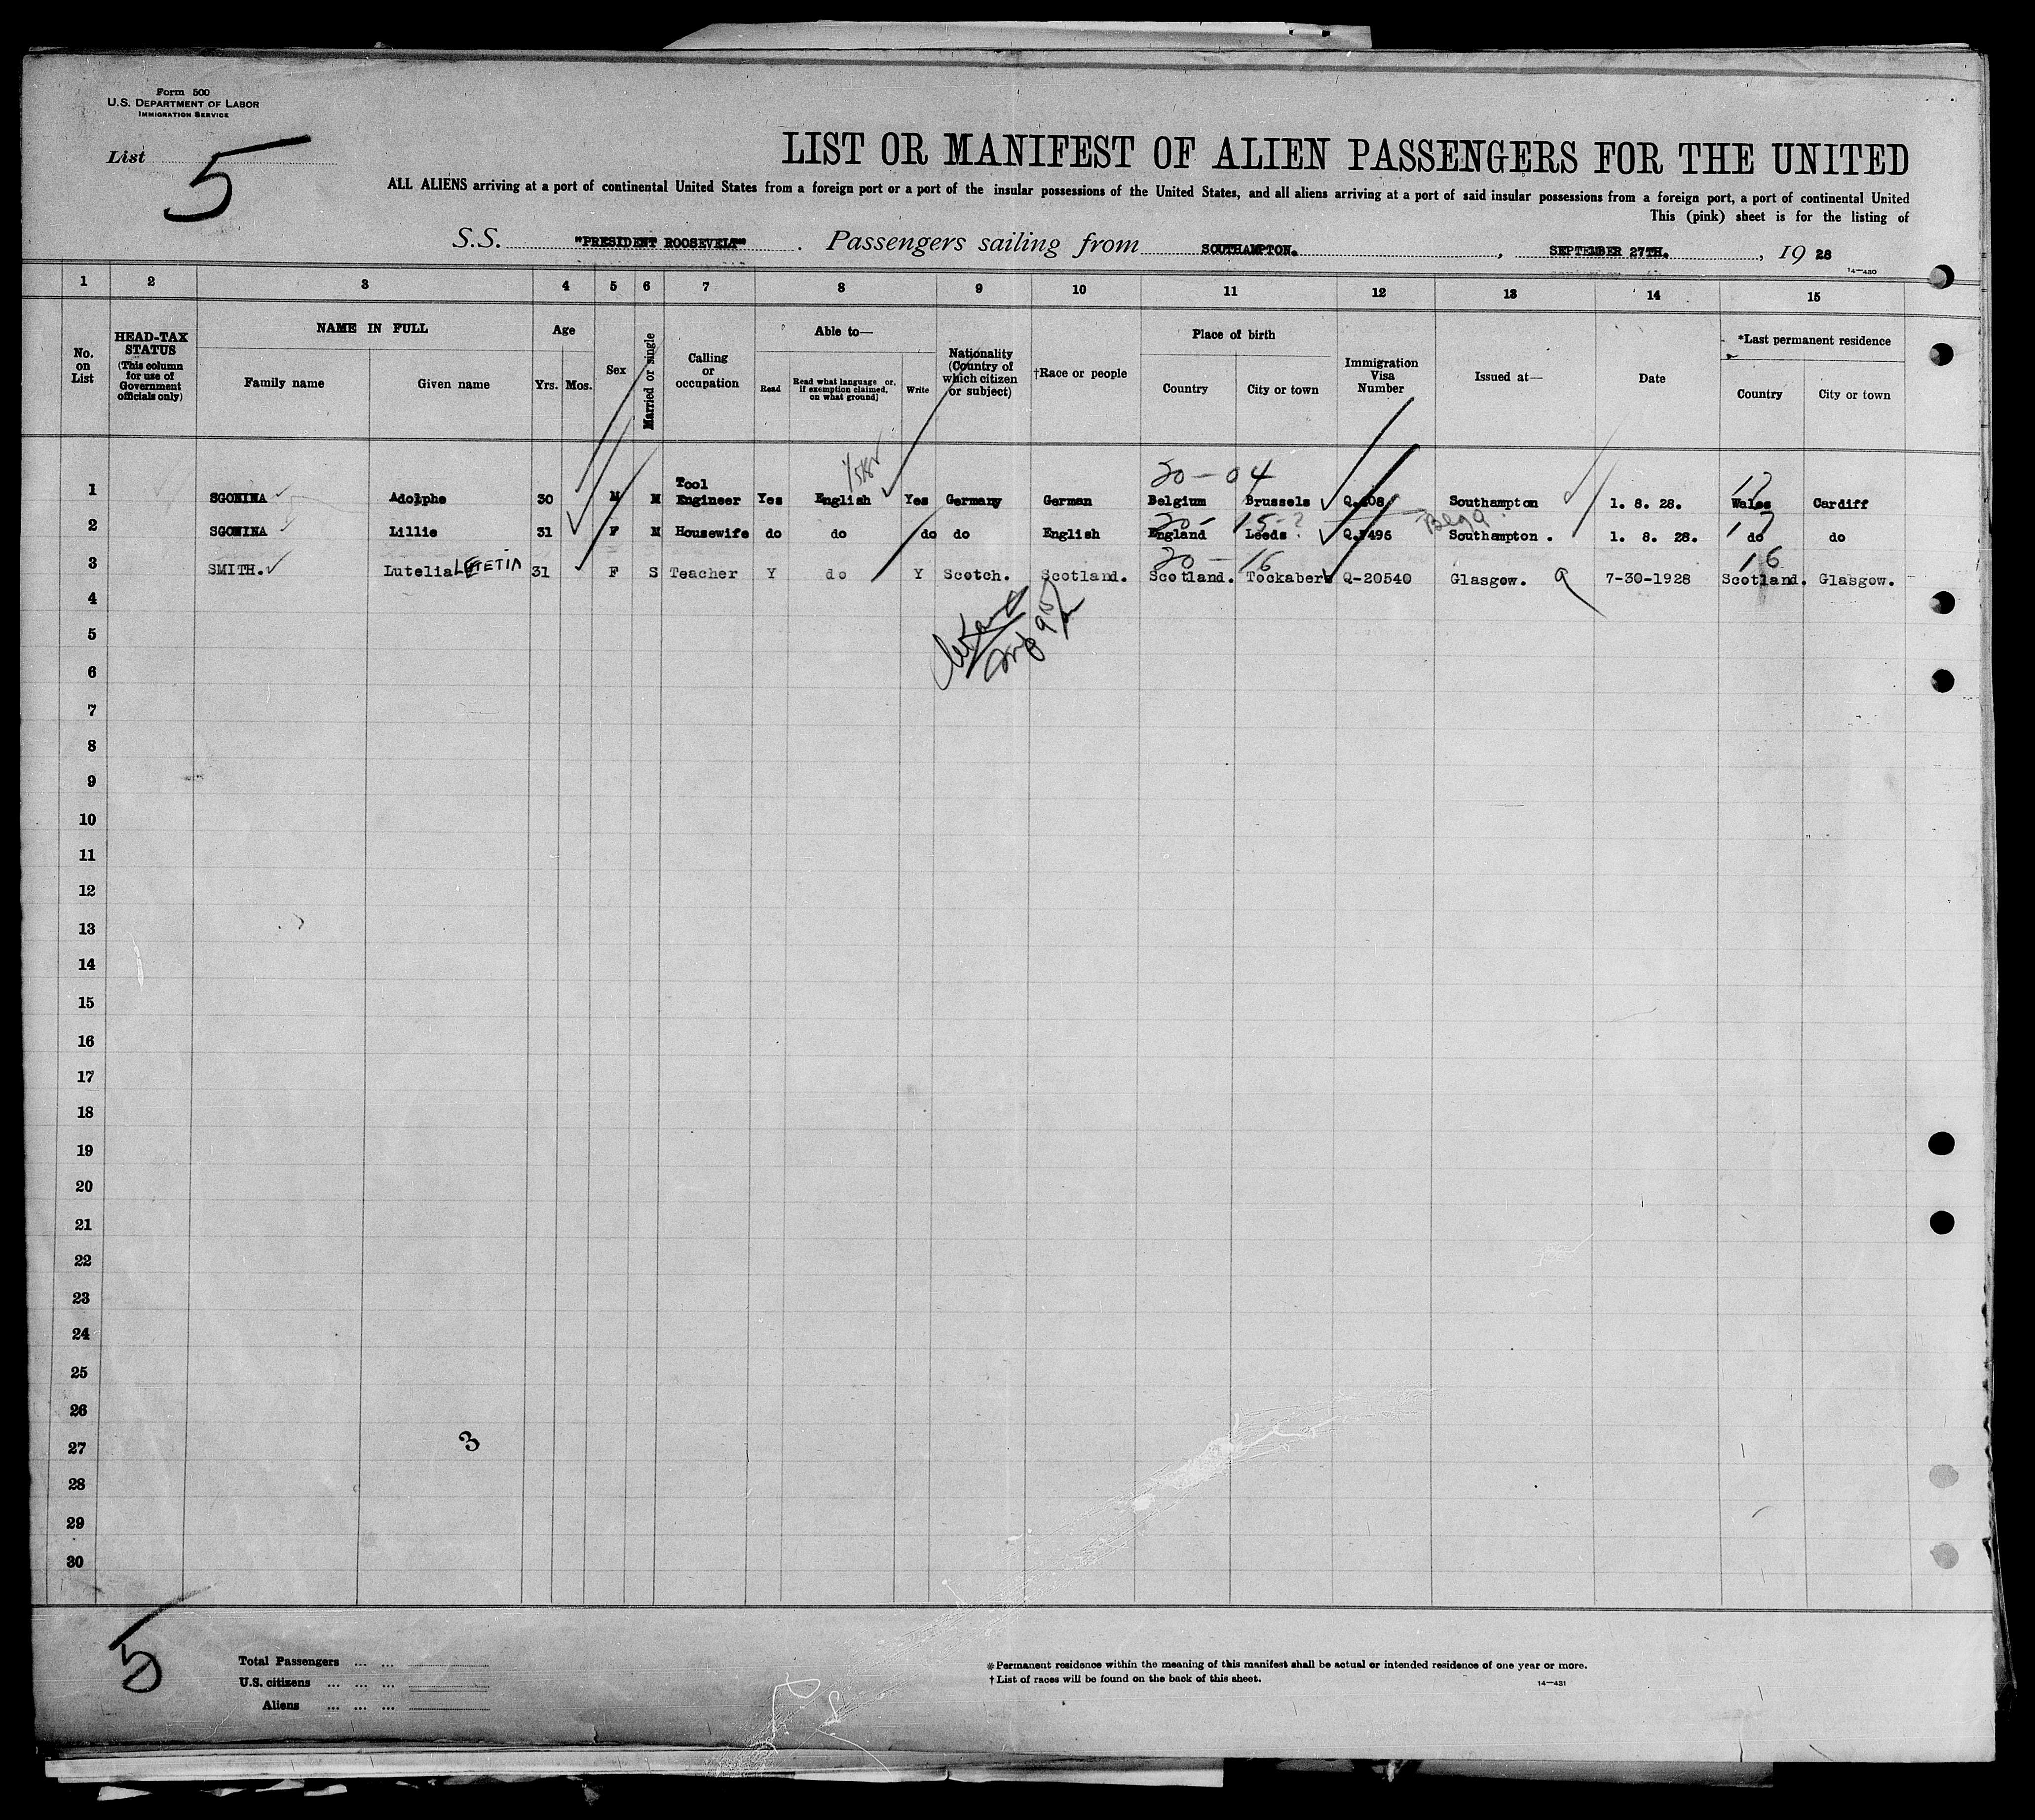 Form 500
U.S. DEPARTMENT OF LABOR
IMMIGRATION SERVICE
List 5
LIST OR MANIFEST OF ALIEN PASSENGERS FOR THE UNITED
ALL ALIENS arriving at a port of continental United States from a foreign port or a port of the insular possessions of the United States, and all aliens arriving at a port of said insular possessions from a foreign port, a port of continental United
This (pink) sheet is for the listing of
S.S. "PRESIDENT ROOSEVELT" . Passengers sailing from SOUTHAMPTON. , SEPTEMBER 27TH. , 19 28
14—430
1 2 3 4 5 6 7 8 9 10 11 12 13 14 15
No. on List
HEAD-TAX STATUS (This column for use of Government officials only)
NAME IN FULL
Family name Given name
Age
Yrs. Mos.
Sex
Married or single
Calling or occupation
Able to—
Read
Read what language or, if exemption claimed, on what ground]
Write
Nationality (Country of which citizen or subject)
†Race or people
Place of birth
Country City or town
Immigration Visa Number
Issued at—
Date
*Last permanent residence
Country City or town
20 - 04
1 SGONINA Adolphe 30 M M Tool Engineer Yes English Yes Germany German Belgium Brussels Southampton 1. 8. 28. Wales Cardiff
20- 15-?
2 SGONINA Lillie 31 F M Housewife do do do do English England Leeds. Southampton . 1. 8. 28. do do
20 - 16 16
3 SMITH. Lutelia LETETIA 31 F S Teacher Y do Y Scotch. Scotland. Scotland. Q-20540 Glasgow. 7-30-1928 Scotland. Glasgow.
4
5
6
7
8
9
10
11
12
13
14
15
16
17
18
19
20
21
22
23
24
25
26
27
3
28
29
30
5
Total Passengers ... ...
U.S. citizens ... ... ...
Aliens ... ... ...
*Permanent residence within the meaning of this manifest shall be actual or intended residence of one year or more.
†List of races will be found on the back of this sheet.
14—431